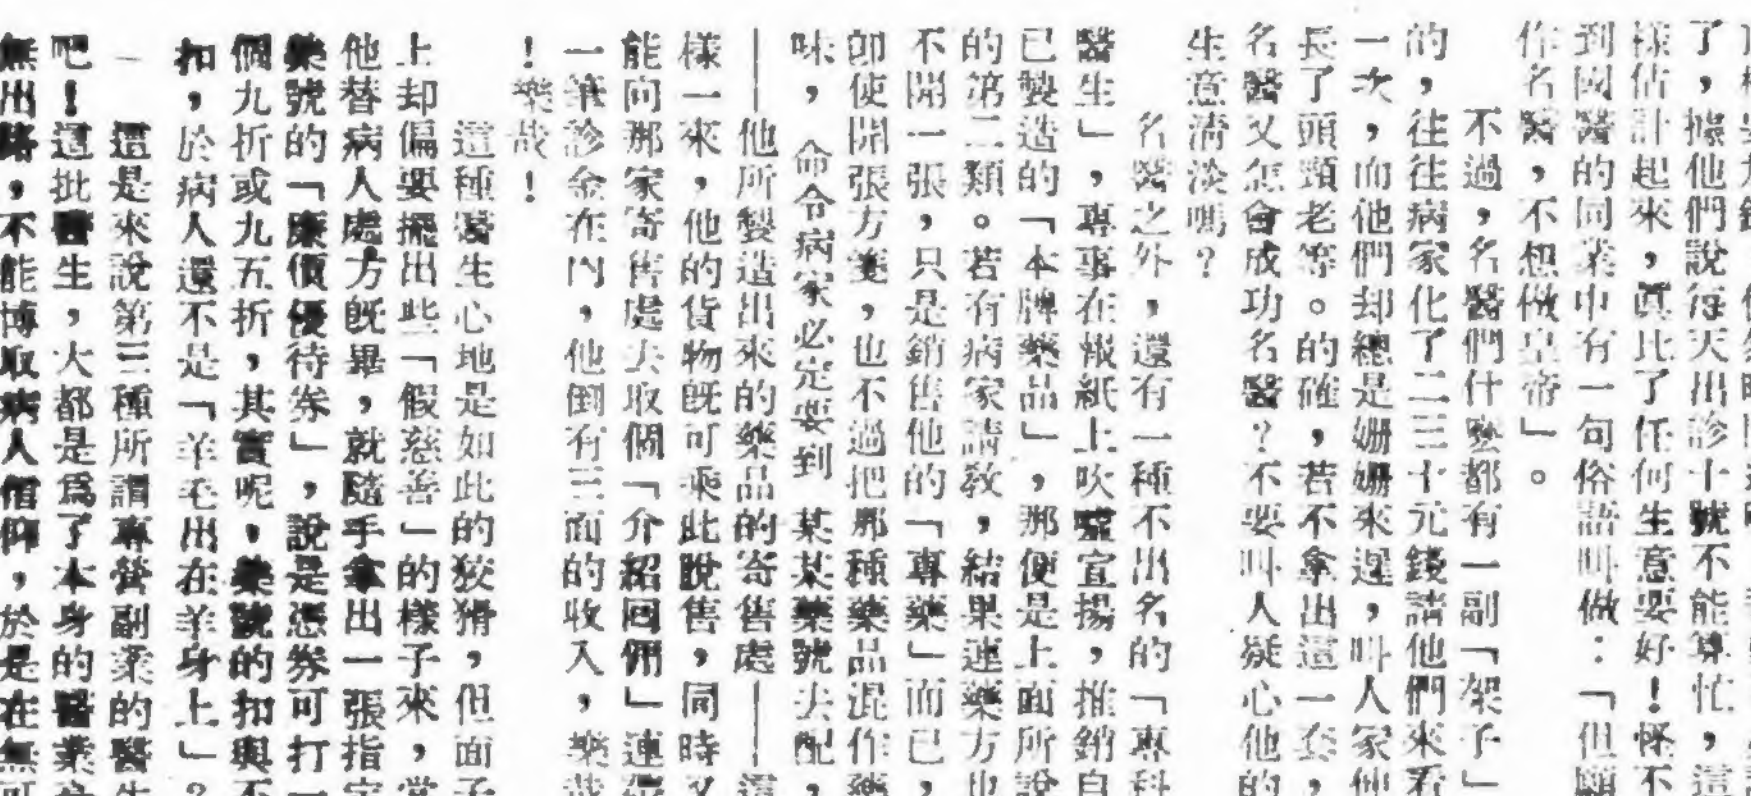 了，據他們說每天出診十號不能算忙，這
樣估計起來，眞比了任何生意要好！怪不
到國醫的同業中有一句俗語叫做：「但願
作名醫，不想做皇帝」。
不過，名醫們什麽都有一副「架子」
的，往往病家化了二三十元錢請他們來看
一次，而他們却總是姍姍來遲，叫人家伸
長了頭頸老等。的確，若不拿出這一套，
名醫又怎會成功名醫？不要叫人疑心他的
生意淸淡嗎？
名醫之外，還有一種不出名的「專科
醫生」，專事在報紙上吹噓宣揚，推銷自
已製造的「本牌藥品」，那便是上面所說
的第二類。若有病家請敎，結果連藥方也
不開一張，只是銷售他的「專藥」而已，
卽使開張方箋，也不過把那種藥品混作藥
味，命令病家必定要到某某藥號去配，
——他所製造出來的藥品的寄售處——這
樣一來，他的貨物旣可乘此脫售，同時又
能向那家寄售處去取個「介紹回佣」連
一筆診金在內，他倒有三面的收入，樂哉
！樂哉！
這種醫生心地是如此的狡猾，但面子
上却偏要擺出些「假慈善」的樣子來，當
他替病人處方旣畢，就隨手拿出一張指定
藥號的「廉價優待券」，說是憑券可打一
個九折或九五折，其實呢，藥號的扣與不
扣，於病人還不是「羊毛出在羊身上」？
這是來說第三種所謂專營副業的醫生
吧！這批醫生，大都是爲了本身的醫業
無出路，不能博取病人信仰，於是在無可